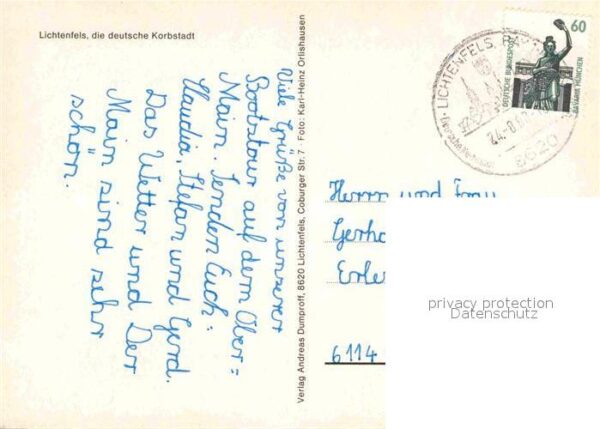 Lichtenfels, die deutsche Korbstadt
Viele Grüße von unserer
Bootstour auf dem Ober=
Main. Senden Euch:
Claudia, Stefan und Gerd.
Das Wetter und Der
Main sind sehr
schön.
Verlag Andreas Dumproff, 8620 Lichtenfels, Coburger Str. 7 Foto: Karl-Heinz Orlishausen
LICHTENFELS,
8620
60
DEUTSCHE BUNDESPOST
BAVARIA MÜNCHEN
Herrn und Frau
Gerha
Erle
6114
privacy protection
Datenschutz